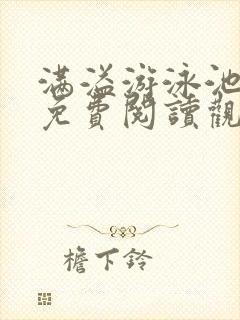 满溢游泳池
免費閱讀觀
檐下鈴